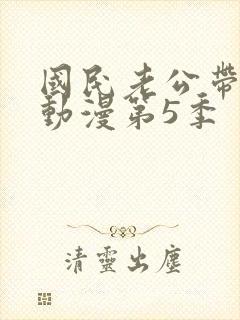 國民老公帶
動漫第5季
清靈出塵